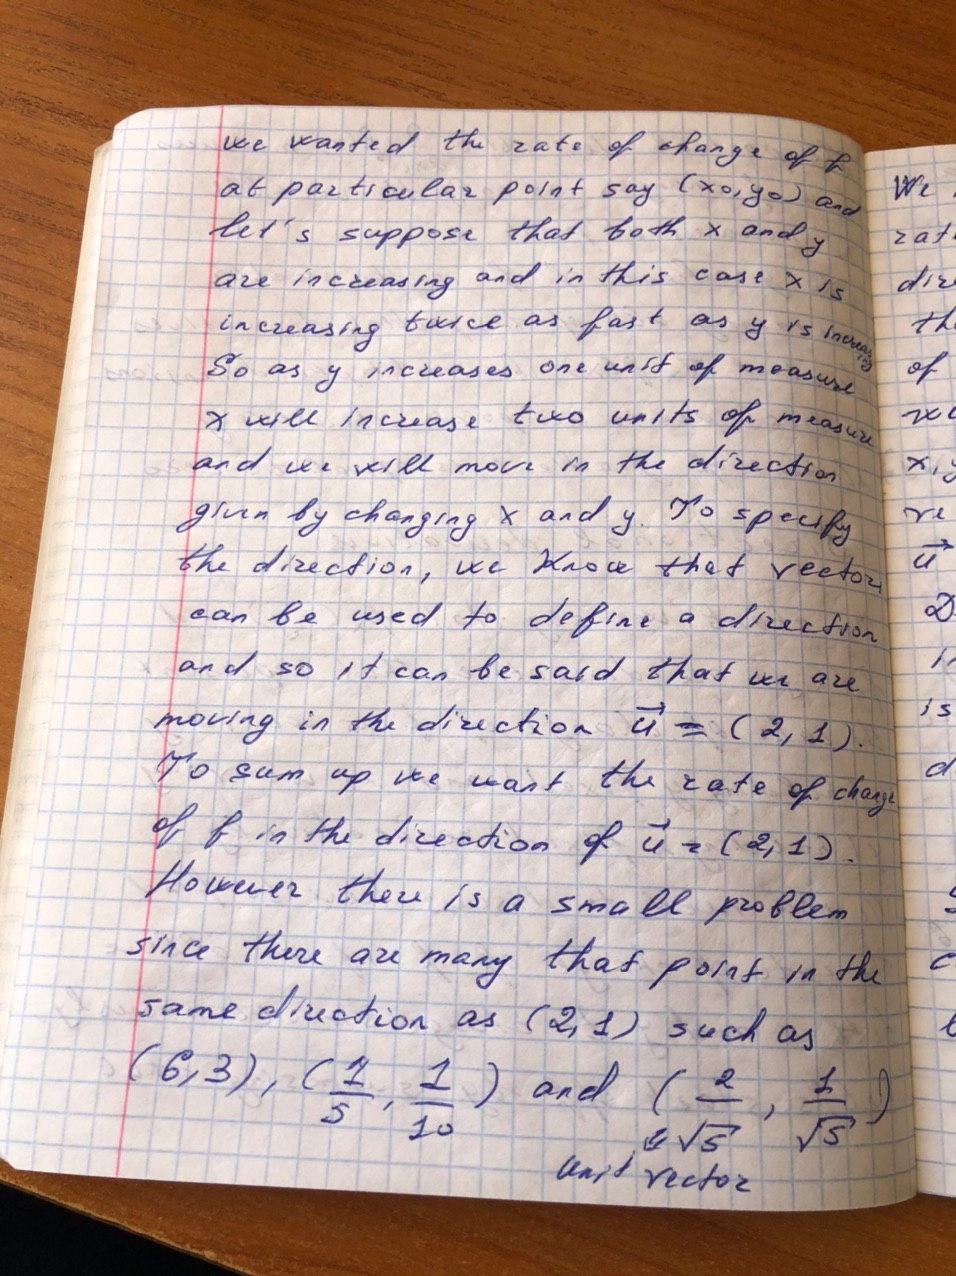 we wanted the rate of change of f
at particular point say (x0, y0) and
let's suppose that both x and y
are increasing and in this case x is
increasing twice as fast as y is increasing
So as y increases one unit of measure
x will increase two units of measure
and we will move in the direction
given by changing x and y. To specify
the direction, we know that vectors
can be used to define a direction
and so it can be said that we are
moving in the direction u⃗ = (2, 1).
To sum up we want the rate of change
of f in the direction of u⃗ = (2, 1).
However there is a small problem
since there are many that point in the
same direction as (2, 1) such as
(6, 3), (1/5, 1/10) and (2/√5, 1/√5)
unit vector
We
rat
dire
th
of
x, y
ve
u⃗
D
in
is
d
c